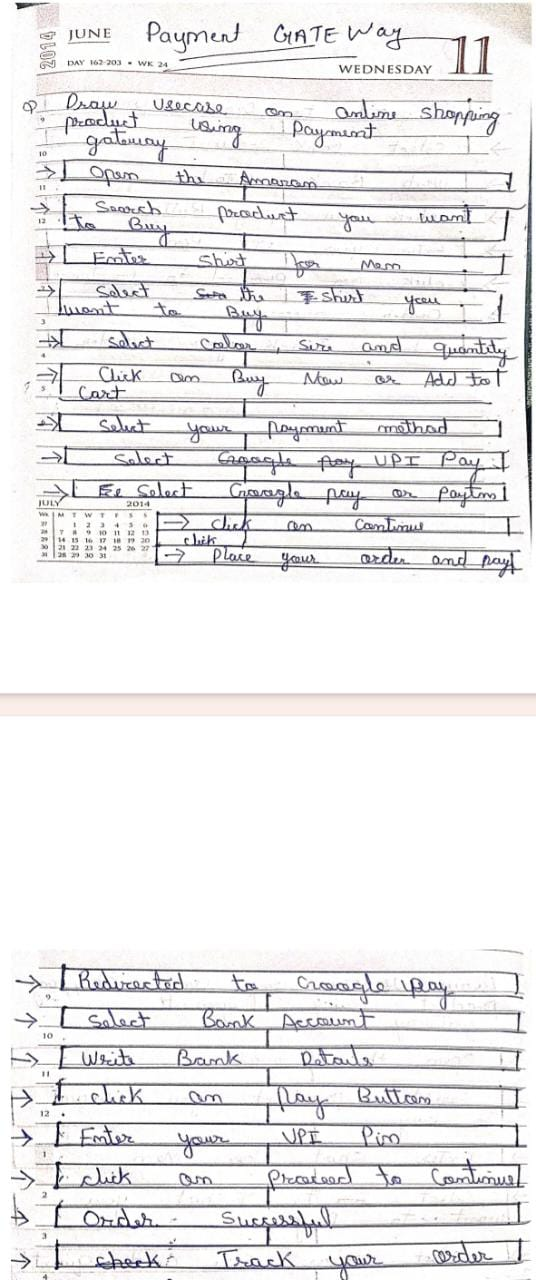 2014 JUNE Payment GATE Way 11
DAY 162-203 • WK 24 WEDNESDAY
Q Draw Usecase on online shopping
9 product using Payment
gateway
10
→ Open the Amazon
11
→ Search product you want
12 to Buy
→ Enter Shirt for Men
→ Select the shirt you
want to Buy
3
→ Select color, size and quantity
4
→ Click on Buy Now or Add to
5 Cart
→ Select your payment method
→ Select Google pay UPI Pay
→ Select Google pay or Paytm
JULY 2014
Wk M T W T F S S
→ click on Continue
27 1 2 3 4 5 6
28 7 8 9 10 11 12 13
29 14 15 16 17 18 19 20
click
30 21 22 23 24 25 26 27
→ Place your order and pay
31 28 29 30 31
→ Redirected to Google pay
9
→ Select Bank Account
10
→ Write Bank Details
11
→ click on Pay Button
12
→ Enter your UPI Pin
1
→ click on Proceed to Continue
2
→ Order Successful
3
→ check Track your order
4